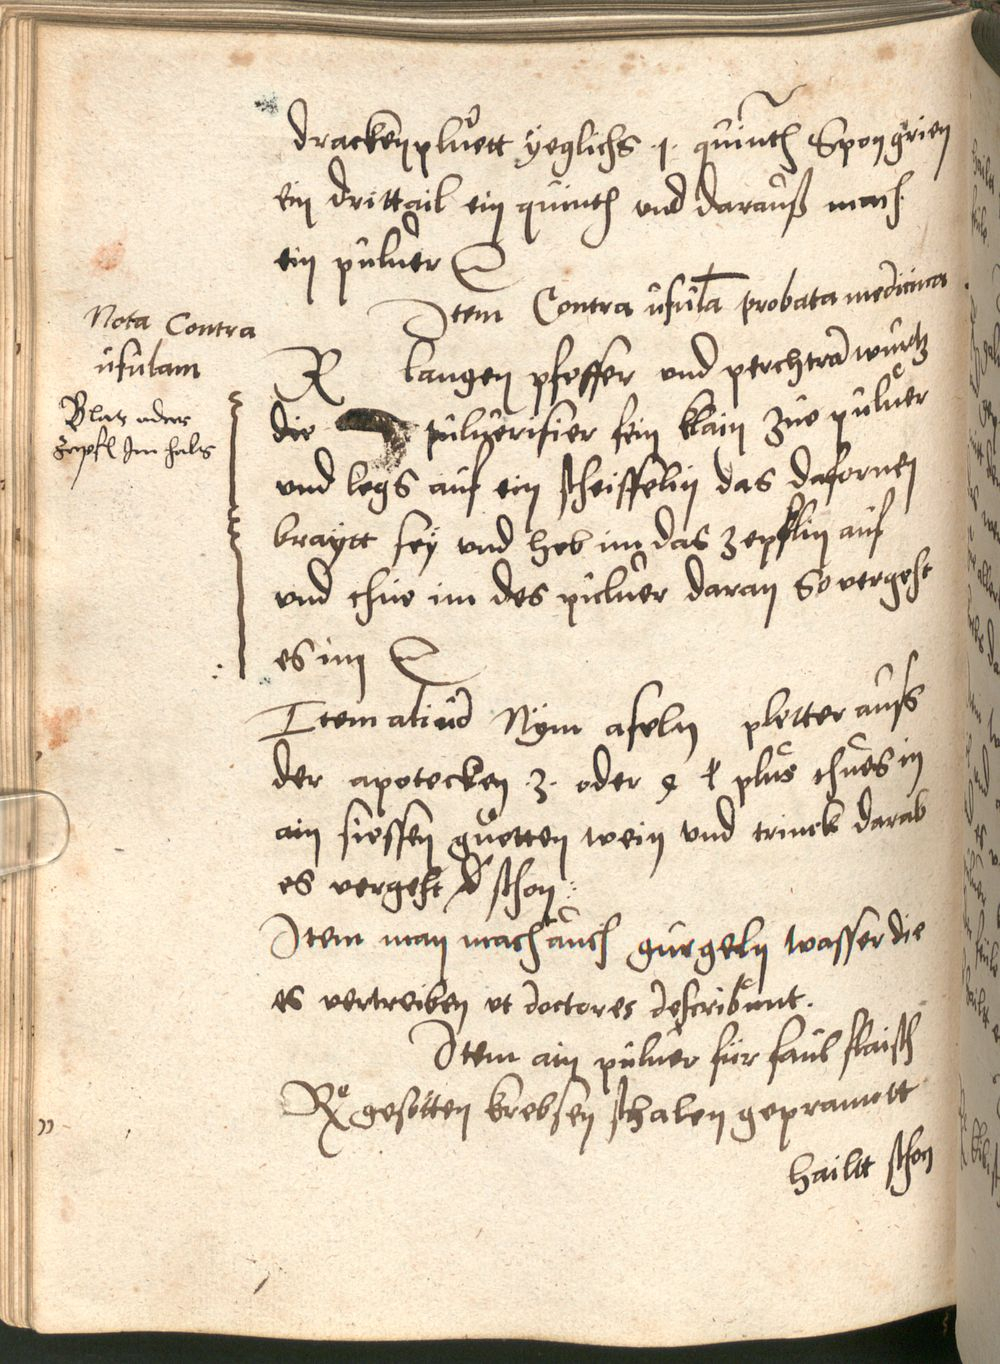 drackenpluett yeglichs .1. quinth Spongrien
ein drittail ein quinth und darauß mach
ein puluer
Item Contra ufula probata medicina
Nota Contra
ufulam
Blat oder
zepfl Im hals
R langen pfeffer und perchtram wurtz
die puluerisier sein klain zue puluer
und legs auf ein scheisselin das dafornen
braytt sey und heb im das zepflin auf
und thue im des puluer daran So vergeht
es im
Item aliud Nym afeln pletter aufs
der apotecken .3. oder 4 plus thues in
ain siessen guetten wein und trinck darab
es vergeht schon
Item man macht auch gurgeln wasser die
es vertreiben ut doctores describunt.
Item ain puluer für faul flaisch
Re gesotten krebsen schalen gepramott
hailtt schon